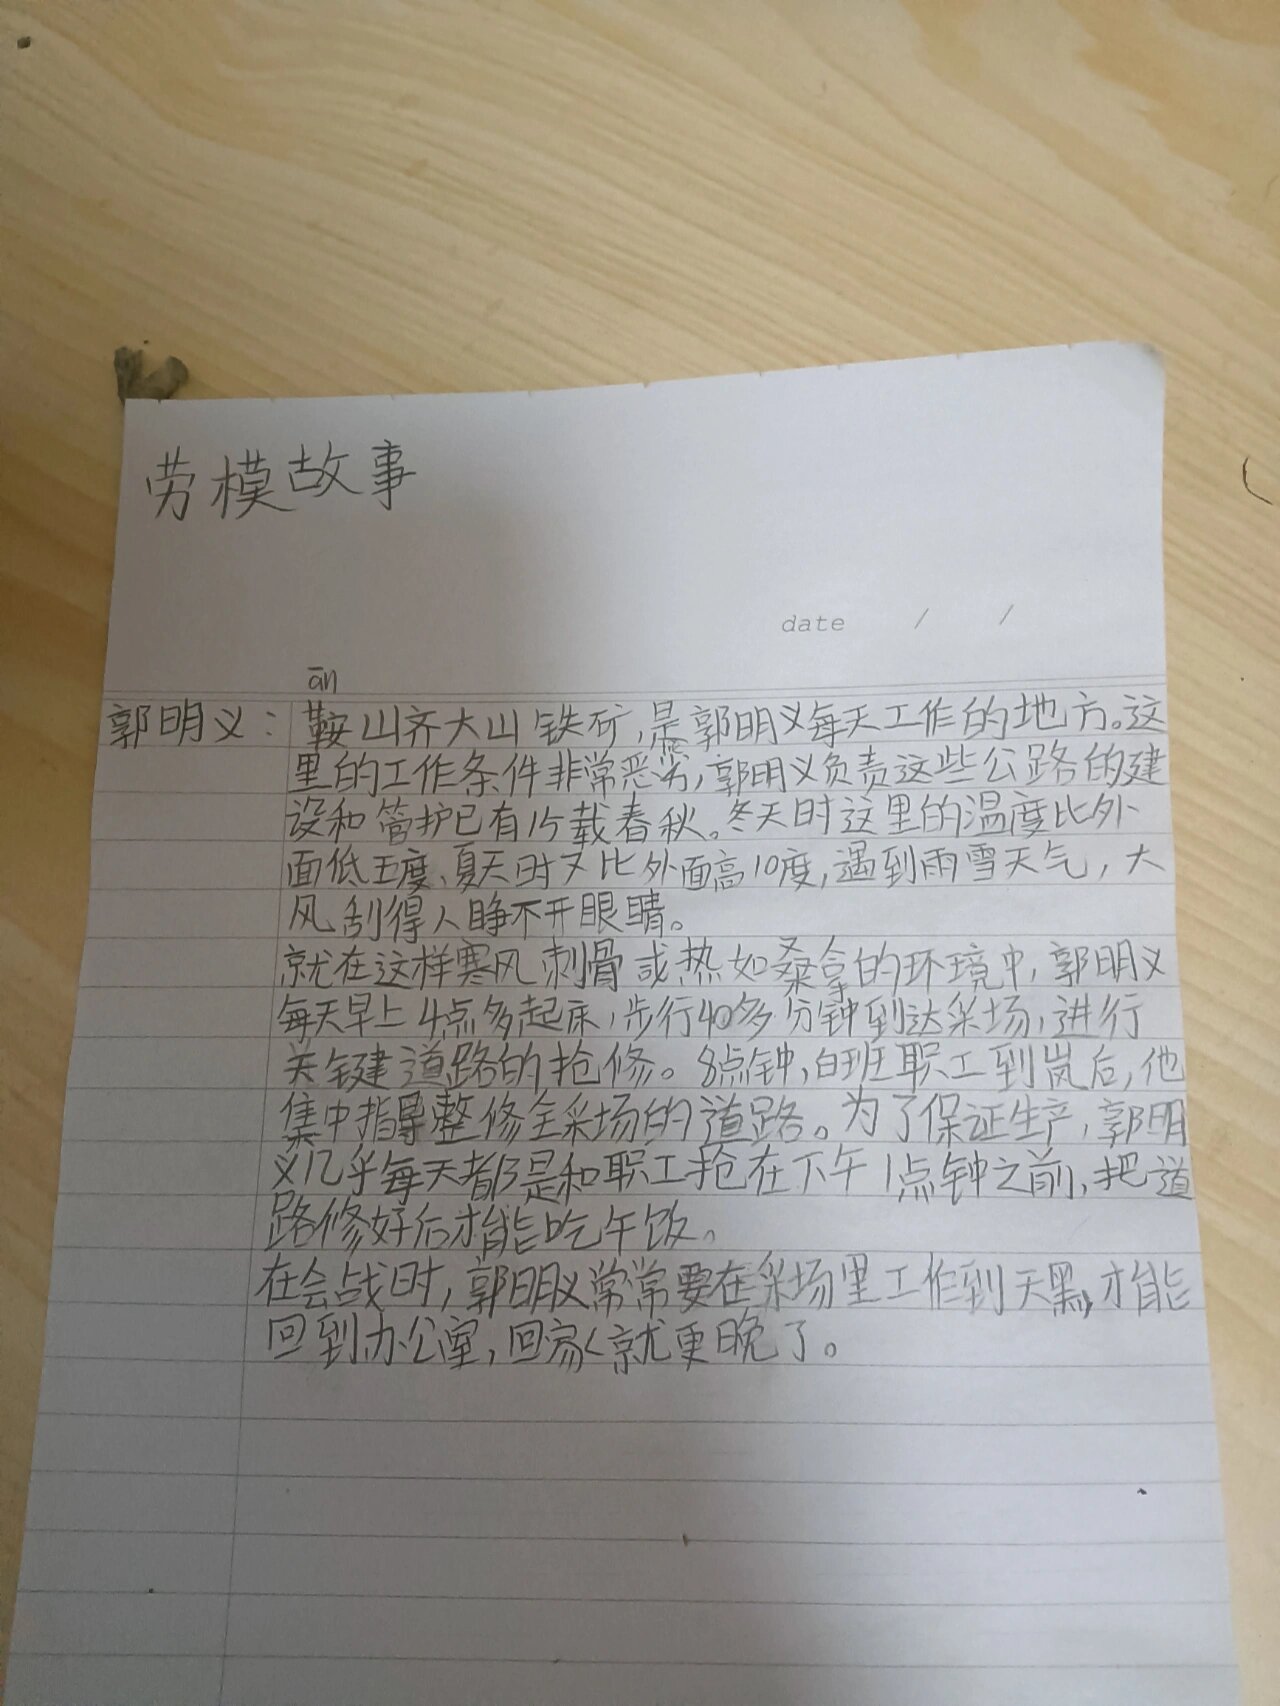 劳模故事
date / /
ān
郭明义：鞍山齐大山铁矿，是郭明义每天工作的地方。这
里的工作条件非常恶劣，郭明义负责这些公路的建
设和管护已有15载春秋。冬天时这里的温度比外
面低五度、夏天时又比外面高10度，遇到雨雪天气，大
风刮得人睁不开眼睛。
就在这样寒风刺骨或热如桑拿的环境中，郭明义
每天早上4点多起床，步行40多分钟到达采场，进行
关键道路的抢修。8点钟，白班职工到岚后，他
集中指导整修全采场的道路。为了保证生产，郭明
义几乎每天都是和职工抢在下午1点钟之前，把道
路修好后才能吃午饭。
在会战时，郭明义常常要在采场里工作到天黑，才能
回到办公室，回家就更晚了。